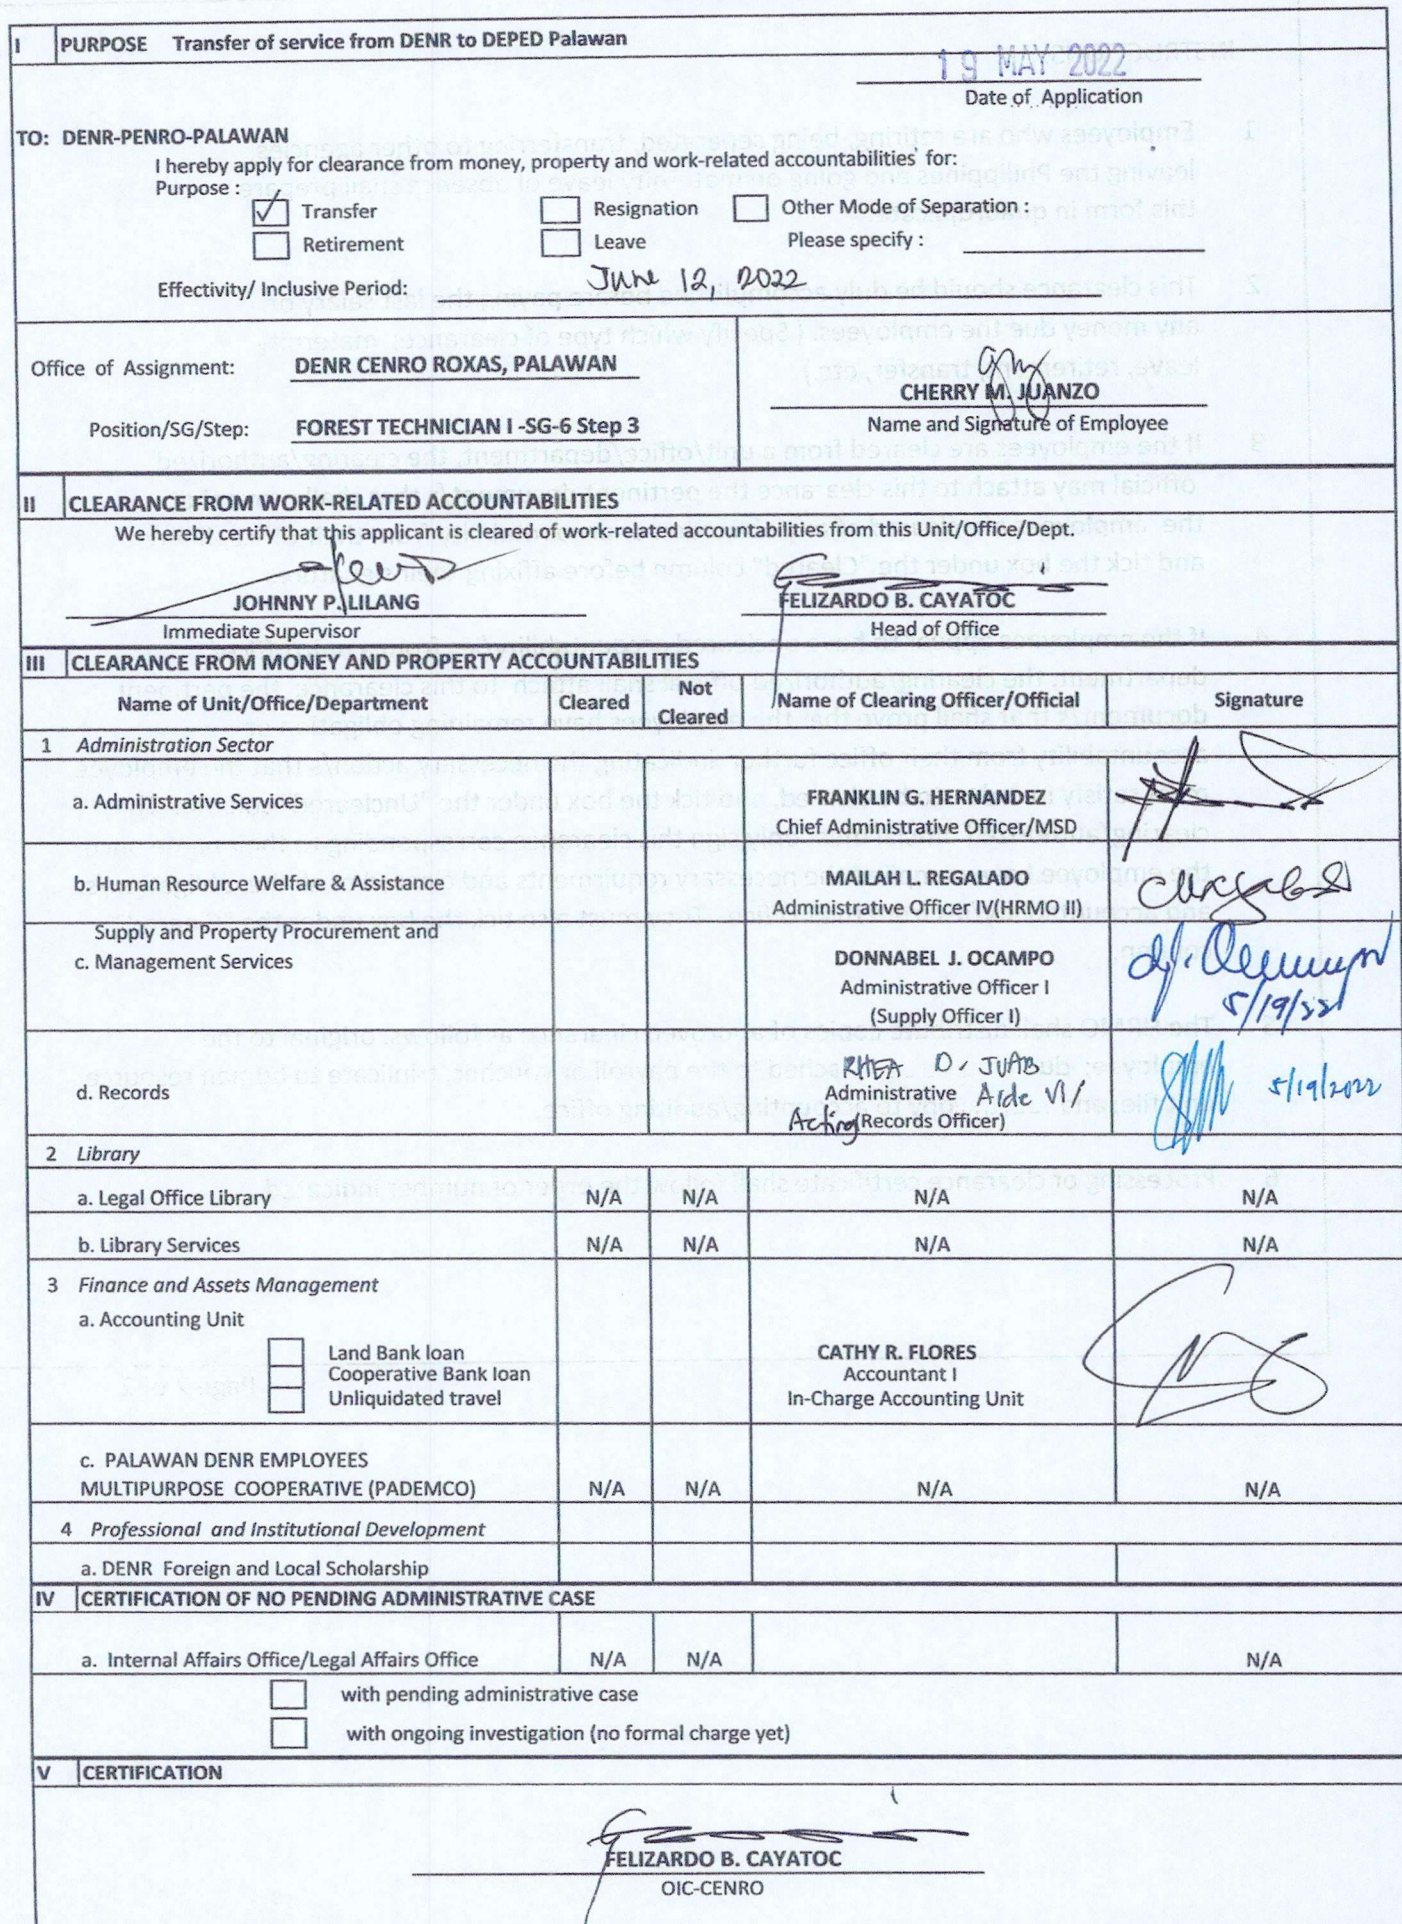 I PURPOSE Transfer of service from DENR to DEPED Palawan
19 MAY 2022
Date of Application
TO: DENR-PENRO-PALAWAN
I hereby apply for clearance from money, property and work-related accountabilities for:
Purpose :
✓ Transfer Resignation Other Mode of Separation :
Retirement Leave Please specify :
Effectivity/ Inclusive Period: June 12, 2022
Office of Assignment: DENR CENRO ROXAS, PALAWAN
CHERRY M. JUANZO
Position/SG/Step: FOREST TECHNICIAN I -SG-6 Step 3 Name and Signature of Employee
II CLEARANCE FROM WORK-RELATED ACCOUNTABILITIES
We hereby certify that this applicant is cleared of work-related accountabilities from this Unit/Office/Dept.
JOHNNY P. LILANG FELIZARDO B. CAYATOC
Immediate Supervisor Head of Office
III CLEARANCE FROM MONEY AND PROPERTY ACCOUNTABILITIES
Name of Unit/Office/Department Cleared Not Cleared Name of Clearing Officer/Official Signature
1 Administration Sector
a. Administrative Services FRANKLIN G. HERNANDEZ
Chief Administrative Officer/MSD
b. Human Resource Welfare & Assistance MAILAH L. REGALADO
Administrative Officer IV(HRMO II)
Supply and Property Procurement and
c. Management Services DONNABEL J. OCAMPO
Administrative Officer I
(Supply Officer I) 5/19/22
RHEA D. JUAB
d. Records Administrative Aide VI/ 5/19/2022
Acting (Records Officer)
2 Library
a. Legal Office Library N/A N/A N/A N/A
b. Library Services N/A N/A N/A N/A
3 Finance and Assets Management
a. Accounting Unit
Land Bank loan CATHY R. FLORES
Cooperative Bank loan Accountant I
Unliquidated travel In-Charge Accounting Unit
c. PALAWAN DENR EMPLOYEES
MULTIPURPOSE COOPERATIVE (PADEMCO) N/A N/A N/A N/A
4 Professional and Institutional Development
a. DENR Foreign and Local Scholarship
IV CERTIFICATION OF NO PENDING ADMINISTRATIVE CASE
a. Internal Affairs Office/Legal Affairs Office N/A N/A N/A
with pending administrative case
with ongoing investigation (no formal charge yet)
V CERTIFICATION
FELIZARDO B. CAYATOC
OIC-CENRO